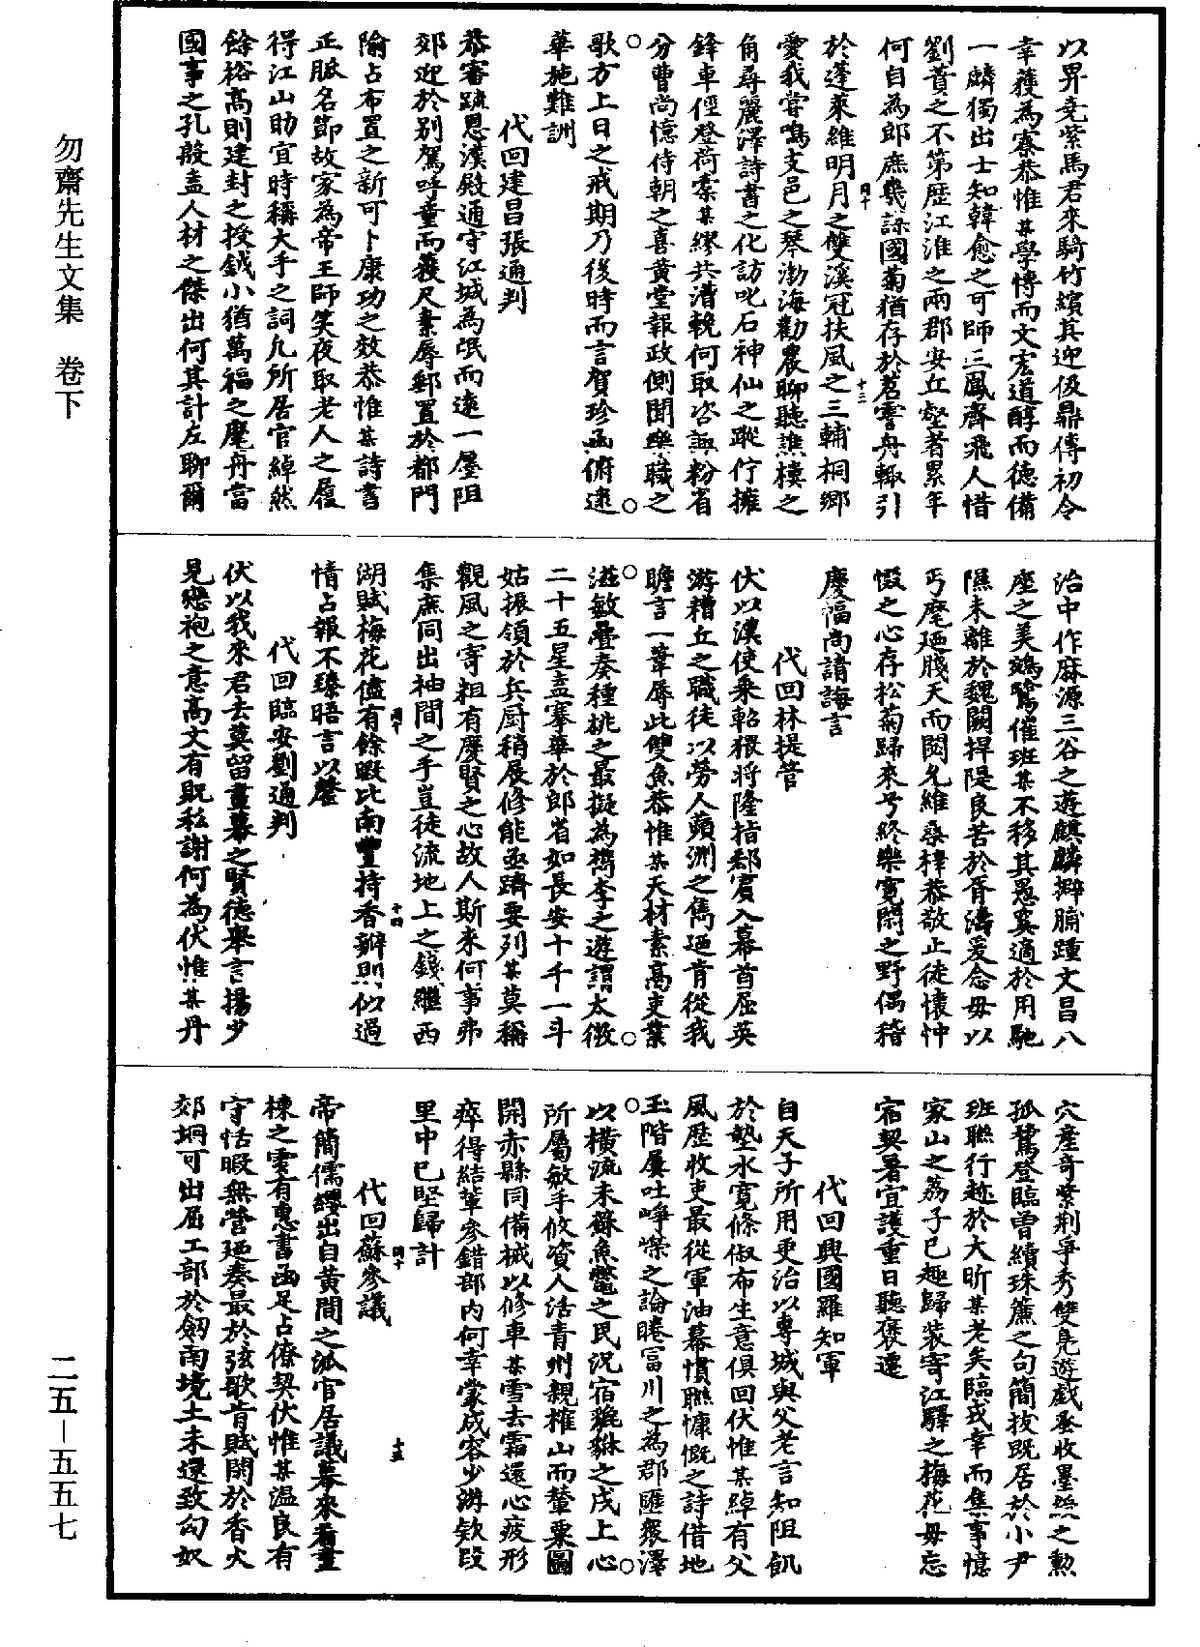 勿齋先生文集　卷下
二五－五五七
以昇堯紫馬君來騎竹繽其迎伋鼎傳初令
幸獲為寮恭惟某學博而文宏道醇而德備
一麟獨出士知韓愈之可師三鳳齊飛人惜
劉蕡之不第歷江淮之兩郡安丘壑者累年
何自為郎庶幾諒國菊猶存於茗霅舟輒引
於蓬萊維明月之雙溪冠扶風之三輔桐鄉
愛我嘗鳴支邑之琴渤海勸農聊聽譙樓之
角尋麗澤詩書之化訪叱石神仙之蹤佇擁
鋒車徑登荷橐某繆共漕輓何取咨諏粉省
分曹尚憶侍朝之喜黃堂報政側聞樂職之
歌方上日之戒期乃後時而言賀珍函俯逮
華施難詶
代回建昌張通判
恭審疏恩漢殿通守江城為氓而遠一廛阻
郊迎於別駕呼童而蓛尺素辱郵置於都門
隃占布置之新可卜康功之效恭惟某詩書
正脈名節故家為帝王師笑夜取老人之履
得江山助宜時稱大手之詞凡所居官綽然
餘裕高則建封之授鉞小猶萬福之麾舟當
國事之孔殷盍人材之傑出何其計左聊爾
治中作麻源三谷之遊麒麟擗脯踵文昌八
座之美鵷鷺催班某不移其愚奚適於用馳
隰未離於魏闕捍隄良苦於胥濤爰念毋以
丐麾廼賤天而閟允維桑梓恭敬止徒懷忡
惙之心存松菊歸來兮終樂寬閑之野偶稽
慶幅尚請誨言
代回林提管
伏以漢使乘軺猥將隆指郄賓入幕首屈英
游糟丘之職徒以勞人蘋洲之雋廼肯從我
瞻言一葦辱此雙魚恭惟某天材素高吏業
滋敏疊奏種桃之最擬為檇李之遊謂太微
二十五星盍搴華於郎省如長安十千一斗
姑振領於兵厨稍展修能亟躋要列某莫稱
觀風之寄粗有慶賢之心故人斯來何事弗
集庶同出袖間之手豈徒流地上之錢繼西
湖賦梅花儘有餘暇比南豐持香瓣則似過
情占報不臻晤言以罄
代回臨安劉通判
伏以我來君去莫留畫幕之賢德舉言揚少
見戀袍之意高文有貺私謝何為伏惟某丹
穴產奇紫荆爭秀雙鳧遊戲亟收墨綬之勲
孤鶩登臨曾續珠簾之句簡拔既居於小尹
班聯行趂於大昕某老矣臨戎幸而集事憶
家山之荔子已趣歸裝寄江驛之梅花毋忘
宿契暑宜護重日聽褒遷
代回興國羅知軍
自天子所用更治以專城與父老言知阻飢
於墊水寬條俶布生意俱回伏惟某綽有父
風歷收吏最從軍油幕慣聯慷慨之詩借地
玉階屢吐崢嶸之論睠富川之為郡匯衆澤
以橫流未蘇魚鼈之民況宿貔貅之戌上心
所屬敏手攸資人活青州親榷山而輦粟圖
開赤縣同備械以修車某雪去霜還心疲形
瘁得結輩參錯部內何幸蒙成容少游欵段
里中已堅歸計
代回蘇參議
帝簡儒纓出自黃間之派官居議幕來看畫
棟之雲有惠書函足占僚契伏惟某温良有
守恬暇無營廼奏最於弦歌肯賦閑於香火
郊坰可出屈工部於劔南境土未還致匈奴
四十　十三
四十　十四
四十　十五